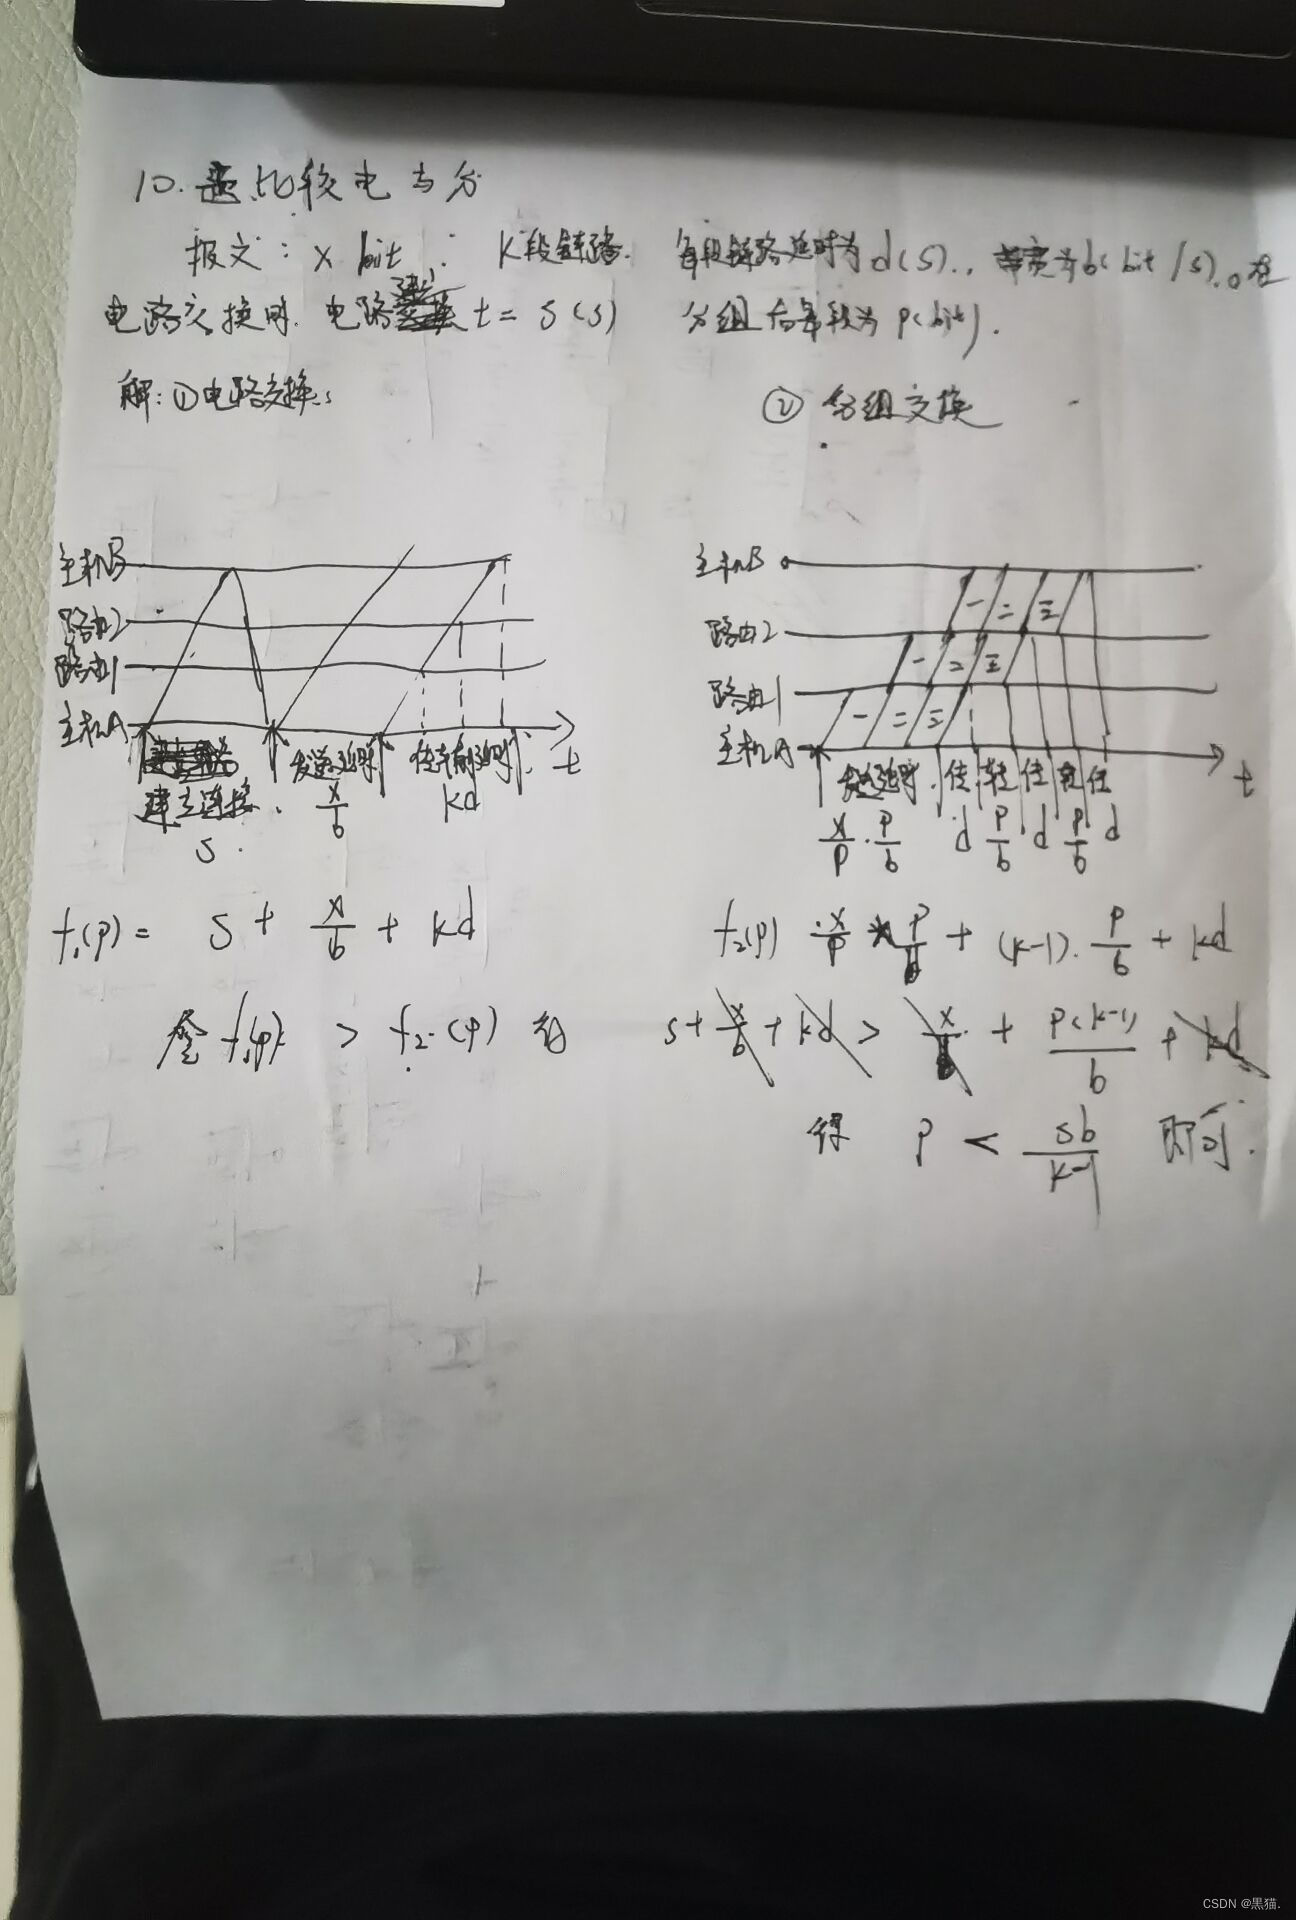 10. 比较电与分
报文: x bit K段链路. 每段链路延时为d(s)., 带宽为b(bit/s).。在
电路交换时. 电路建立t=s(s) 分组后每段为p(bit).
解:①电路交换: ②分组交换
主机B
路由2
路由1
主机A
建立连接 发送延时 传输延时 t
s x/b kd
主机B
路由2
路由1
主机A
一 二 三
一 二 三
一 二 三
发送延时 传 转 传 转 传 t
x/p · p/b d p/b d p/b d
f₁(p) = s + x/b + kd
f₂(p) x/p * p/b + (k-1)·p/b + kd
令 f₁(p) > f₂(p) 有 s + x/b + kd > x/b + p(k-1)/b + kd
得 p < sb/k-1 即可.
CSDN @黑猫.